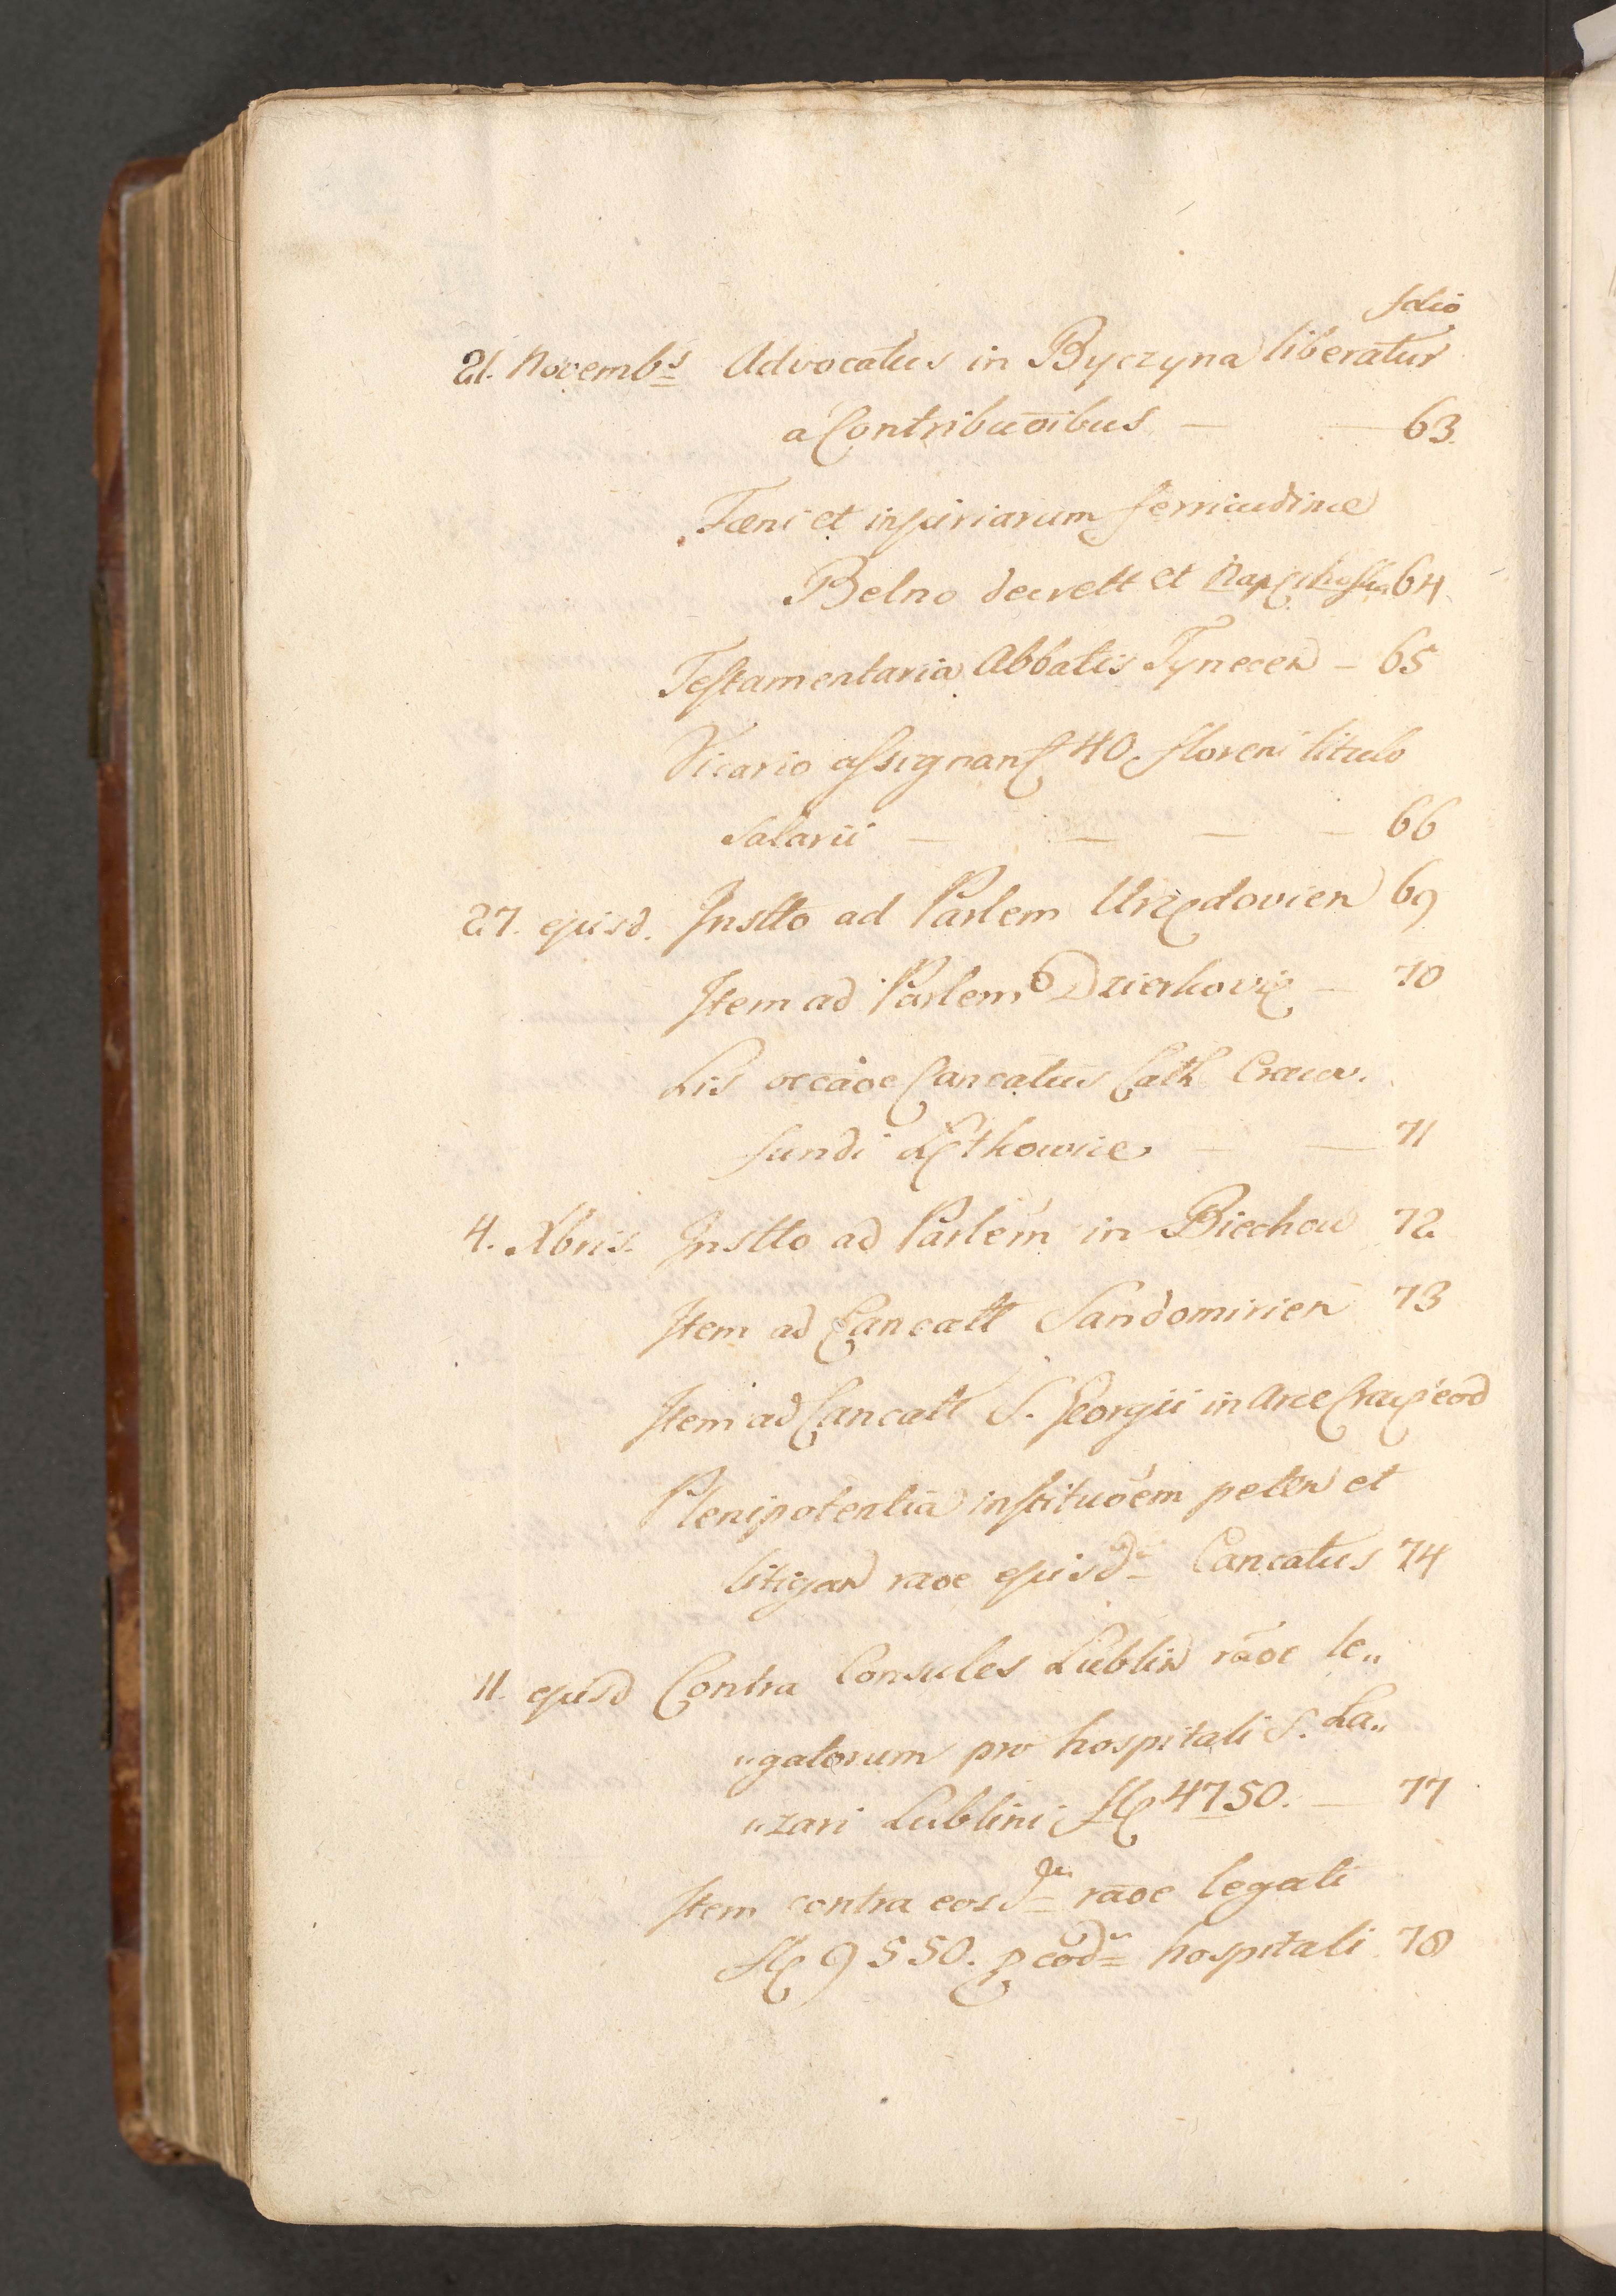 folio
21. Novemb.s Advocatus in Byczyna liberatur
a Contribuōibus — — 63.
Fæni et injuriarum
Belno decrett et 64.
Testamentaria Abbatis Tynecen – 65
Vicario assignant 40 floreni titulo
Salarii — — — – 66
27. ejusd. Instto ad Parlem Urzędovien 69
Item ad Parlem Dzierkovię – 70
Lis occāoe Cancatus Cath Cracov.
fundi Łętkowice — — 71
4. Xbris. Instto ad Parlem in Biechow 72
Item ad Cancatt Sandomirien 73
Item ad Cancatt S. Georgii in Arce Crac eod
Plenipotentia instituōem petten et
litigan raōe ejusd= Cancatus 74
11. ejusd Contra Consules Lublin rāoe le„
„gatorum pro hospitali S. La„
„zari Lublini fl 4750. — 77
Item contra eosd= rāoe legati
fl 9550. p eod= hospitali 78